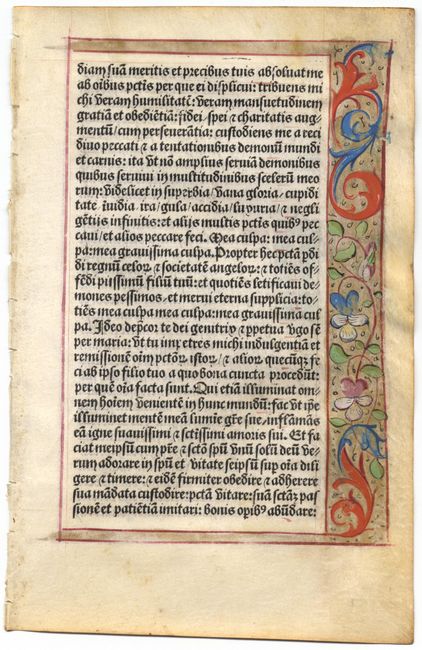 diam suā meritis et precibus tuis absoluat me
ab oībus pctīs per que ei displicui: tribuens mi
chi veram humilitatē: veram mansuetudinem
gratiā et obediētiā: fidei spei ⁊ charitatis aug-
mentū/ cum perseuerātia: custodiens me a reci
diuo peccati ⁊ a tentationibus demonū mundi
et carnis: ita vt nō amplius seruiā demonibus
quibus seruiui in multitudinibus scelerū meo
rum: videlicet in superbia/ vana gloria/ cupidi
tate īuidia ira/ gula/ accidia/ luxuria/ ⁊ negli
gētijs infinitis: et alijs multis pctīs quibꝰ pec
caui/ et alios peccare feci. Mea culpa: mea cul-
pa: mea grauissima culpa. Propter hec pctā pdi
di regnū celoꝝ ⁊ societatē angeloꝝ: ⁊ totiēs of-
fēdi piissimū filiū tuū: et quotiēs letificaui de-
mones pessimos, et merui eterna supplicia: to-
tiēs mea culpa mea culpa: mea grauissima cul
pa. Ideo depcor te dei genitrix ⁊ ppetua vgo sē
per maria: vt tu impetres michi indulgentiā et
remissionē oīm pctōꝝ istoꝝ/ ⁊ alioꝝ quecūqꝫ fe
ci ab ipso filio tuo a quo bona cuncta procedūt:
per quē oīa facta sunt. Qui etiā illuminat om-
nem hoīem venientē in hunc mundū: fac vt ipe
illuminet mentē meā lumīe grē sue, inflāmās
eā igne suauissimi ⁊ sctissimi amoris sui. Et fa
ciat meipsū cum pre ⁊ sctō spū vnū solū deū ve-
rum adorare in spū et vitate seipsū sup oīa dili
gere ⁊ timere: ⁊ eidē firmiter obedire ⁊ adherere
sua mādata custodire: pctā vitare: suā sctāꝫ pas
sionē et patiētiā imitari: bonis opibꝰ abūdare: